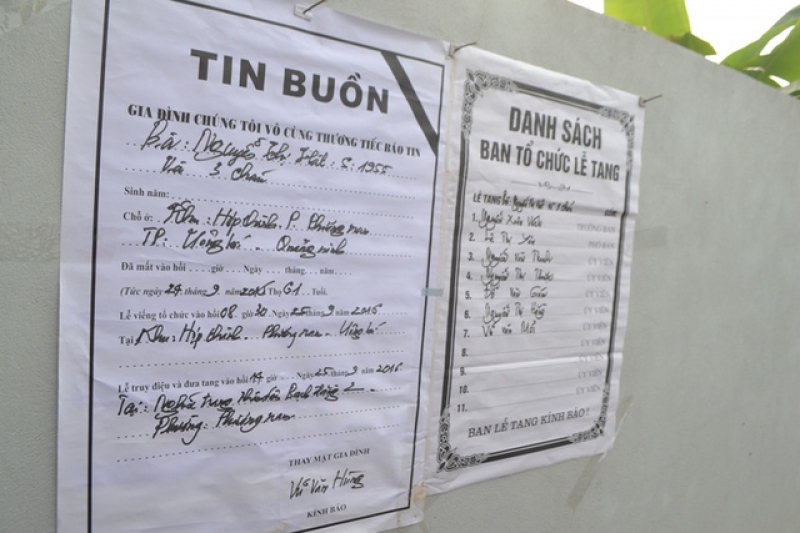 TIN BUỒN
GIA ĐÌNH CHÚNG TÔI VÔ CÙNG THƯƠNG TIẾC BÁO TIN
Bà: Nguyễn Thị Hát. S: 1955
Và 3 cháu
Sinh năm:
Chỗ ở: Khu: Hợp thành. P. Phương nam
TP: Uông bí. Quảng ninh
Đã mất vào hồi ....giờ....Ngày......tháng.....năm
(Tức ngày 24 tháng 9. năm 2016 Thọ 61. Tuổi.
Lễ viếng tổ chức vào hồi 08 giờ 30. Ngày 25 tháng 9 năm 2016
Tại Khu: Hợp thành. Phương nam. Uông bí
Lễ truy điệu và đưa tang vào hồi 14 giờ ... Ngày 25 tháng 9. năm 2016
Tại: Nghĩa trang nhân dân
Phường: Phương nam
THAY MẶT GIA ĐÌNH
Vũ Văn Hùng
KÍNH BÁO
DANH SÁCH
BAN TỔ CHỨC LỄ TANG
LỄ TANG
1. Nguyễn Xuân TRƯỞNG BAN
2. Lê Thị PHÓ BAN
3. Nguyễn Văn ỦY VIÊN
4. Nguyễn Thị ỦY VIÊN
5. ỦY VIÊN
6. Nguyễn Thị ỦY VIÊN
7. Vũ Văn ỦY VIÊN
8. ỦY VIÊN
9. ỦY VIÊN
10. ỦY VIÊN
11.
BAN LỄ TANG KÍNH BÁO !